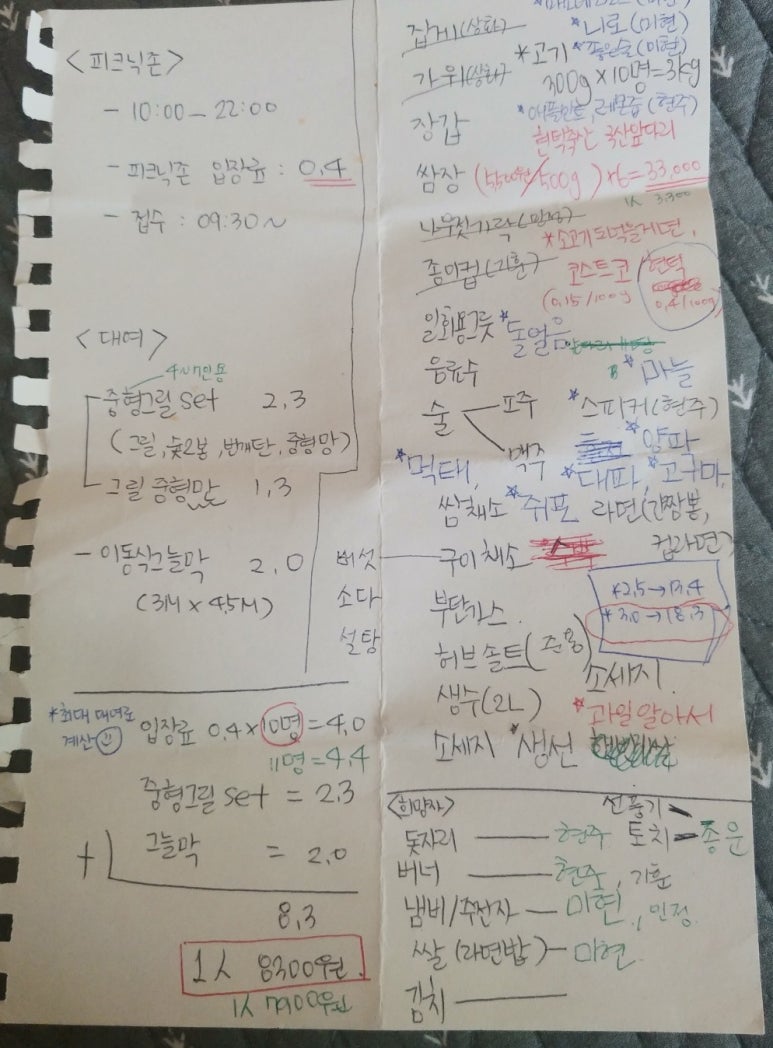 <피크닉존>
- 10:00 - 22:00
- 피크닉존 입장료 : 0.4
- 접수 : 09:30~
<대여>
4~7인용
중형그릴 set 2.3
(그릴, 숯2봉, 번개탄, 중형망)
그릴 중형망 1.3
- 이동식그늘막 2.0
(3M x 4.5M)
*최대 대여로
계산
입장료 0.4 x 10명 = 4.0
11명 = 4.4
중형그릴 set = 2.3
+ 그늘막 = 2.0
8.3
1人 8300원
1人 7900원
집게(상화) *니로(미현)
*고기 *좋은술(미현)
가위(상화) 300g x 10명 = 3kg
장갑 *애플민트, 레몬즙(현주)
현덕축산 국산앞다리
쌈장 (5500원/500g) x6 = 33,000
1人 3,300
나무젓가락
*소고기도먹을게면,
종이컵(기훈) 코스트코 현덕
(0.15/100g) 0.4/100g
일회용그릇 *돌얼음
음료수 *마늘
술 소주 *스피커(현주)
맥주 *양파
*먹태, *대파, *고구마,
쌈채소 *쥐포 라면(간짬뽕,
컵라면)
버섯 구이채소
소다
설탕
*2.5→17.4
*3.0→18.3
부탄가스.
허브솔트(준용)
소세지.
생수(2L) *과일알아서
소세지 *생선
<희망자> 선풍기
돗자리 현주 토치 종운
버너 현주, 기훈
냄비/주전자 - 미현, 인정.
쌀(라면밥) - 미현.
김치